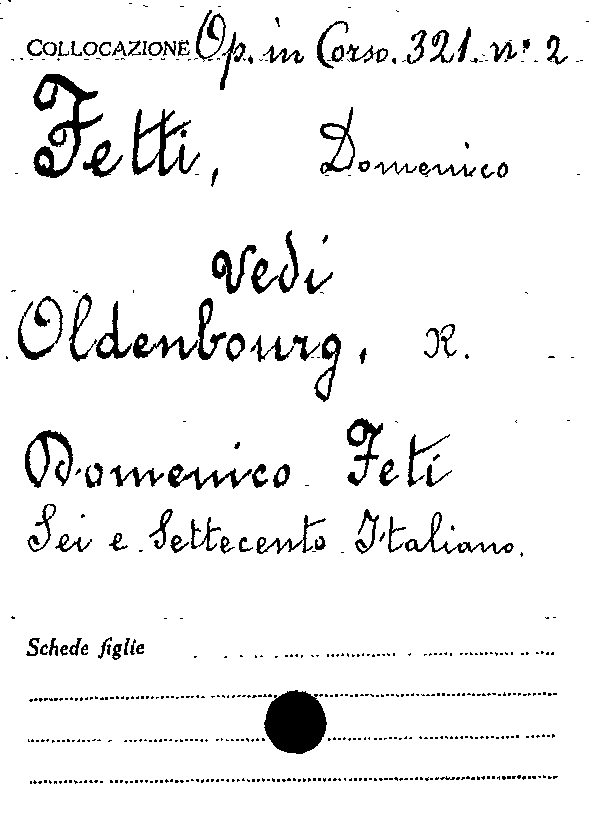 COLLOCAZIONE Op. in Corso. 321. n° 2
Fetti, Domenico
vedi
Oldenbourg, R.
Domenico Feti
Sei e Settecento Italiano.
Schede figlie